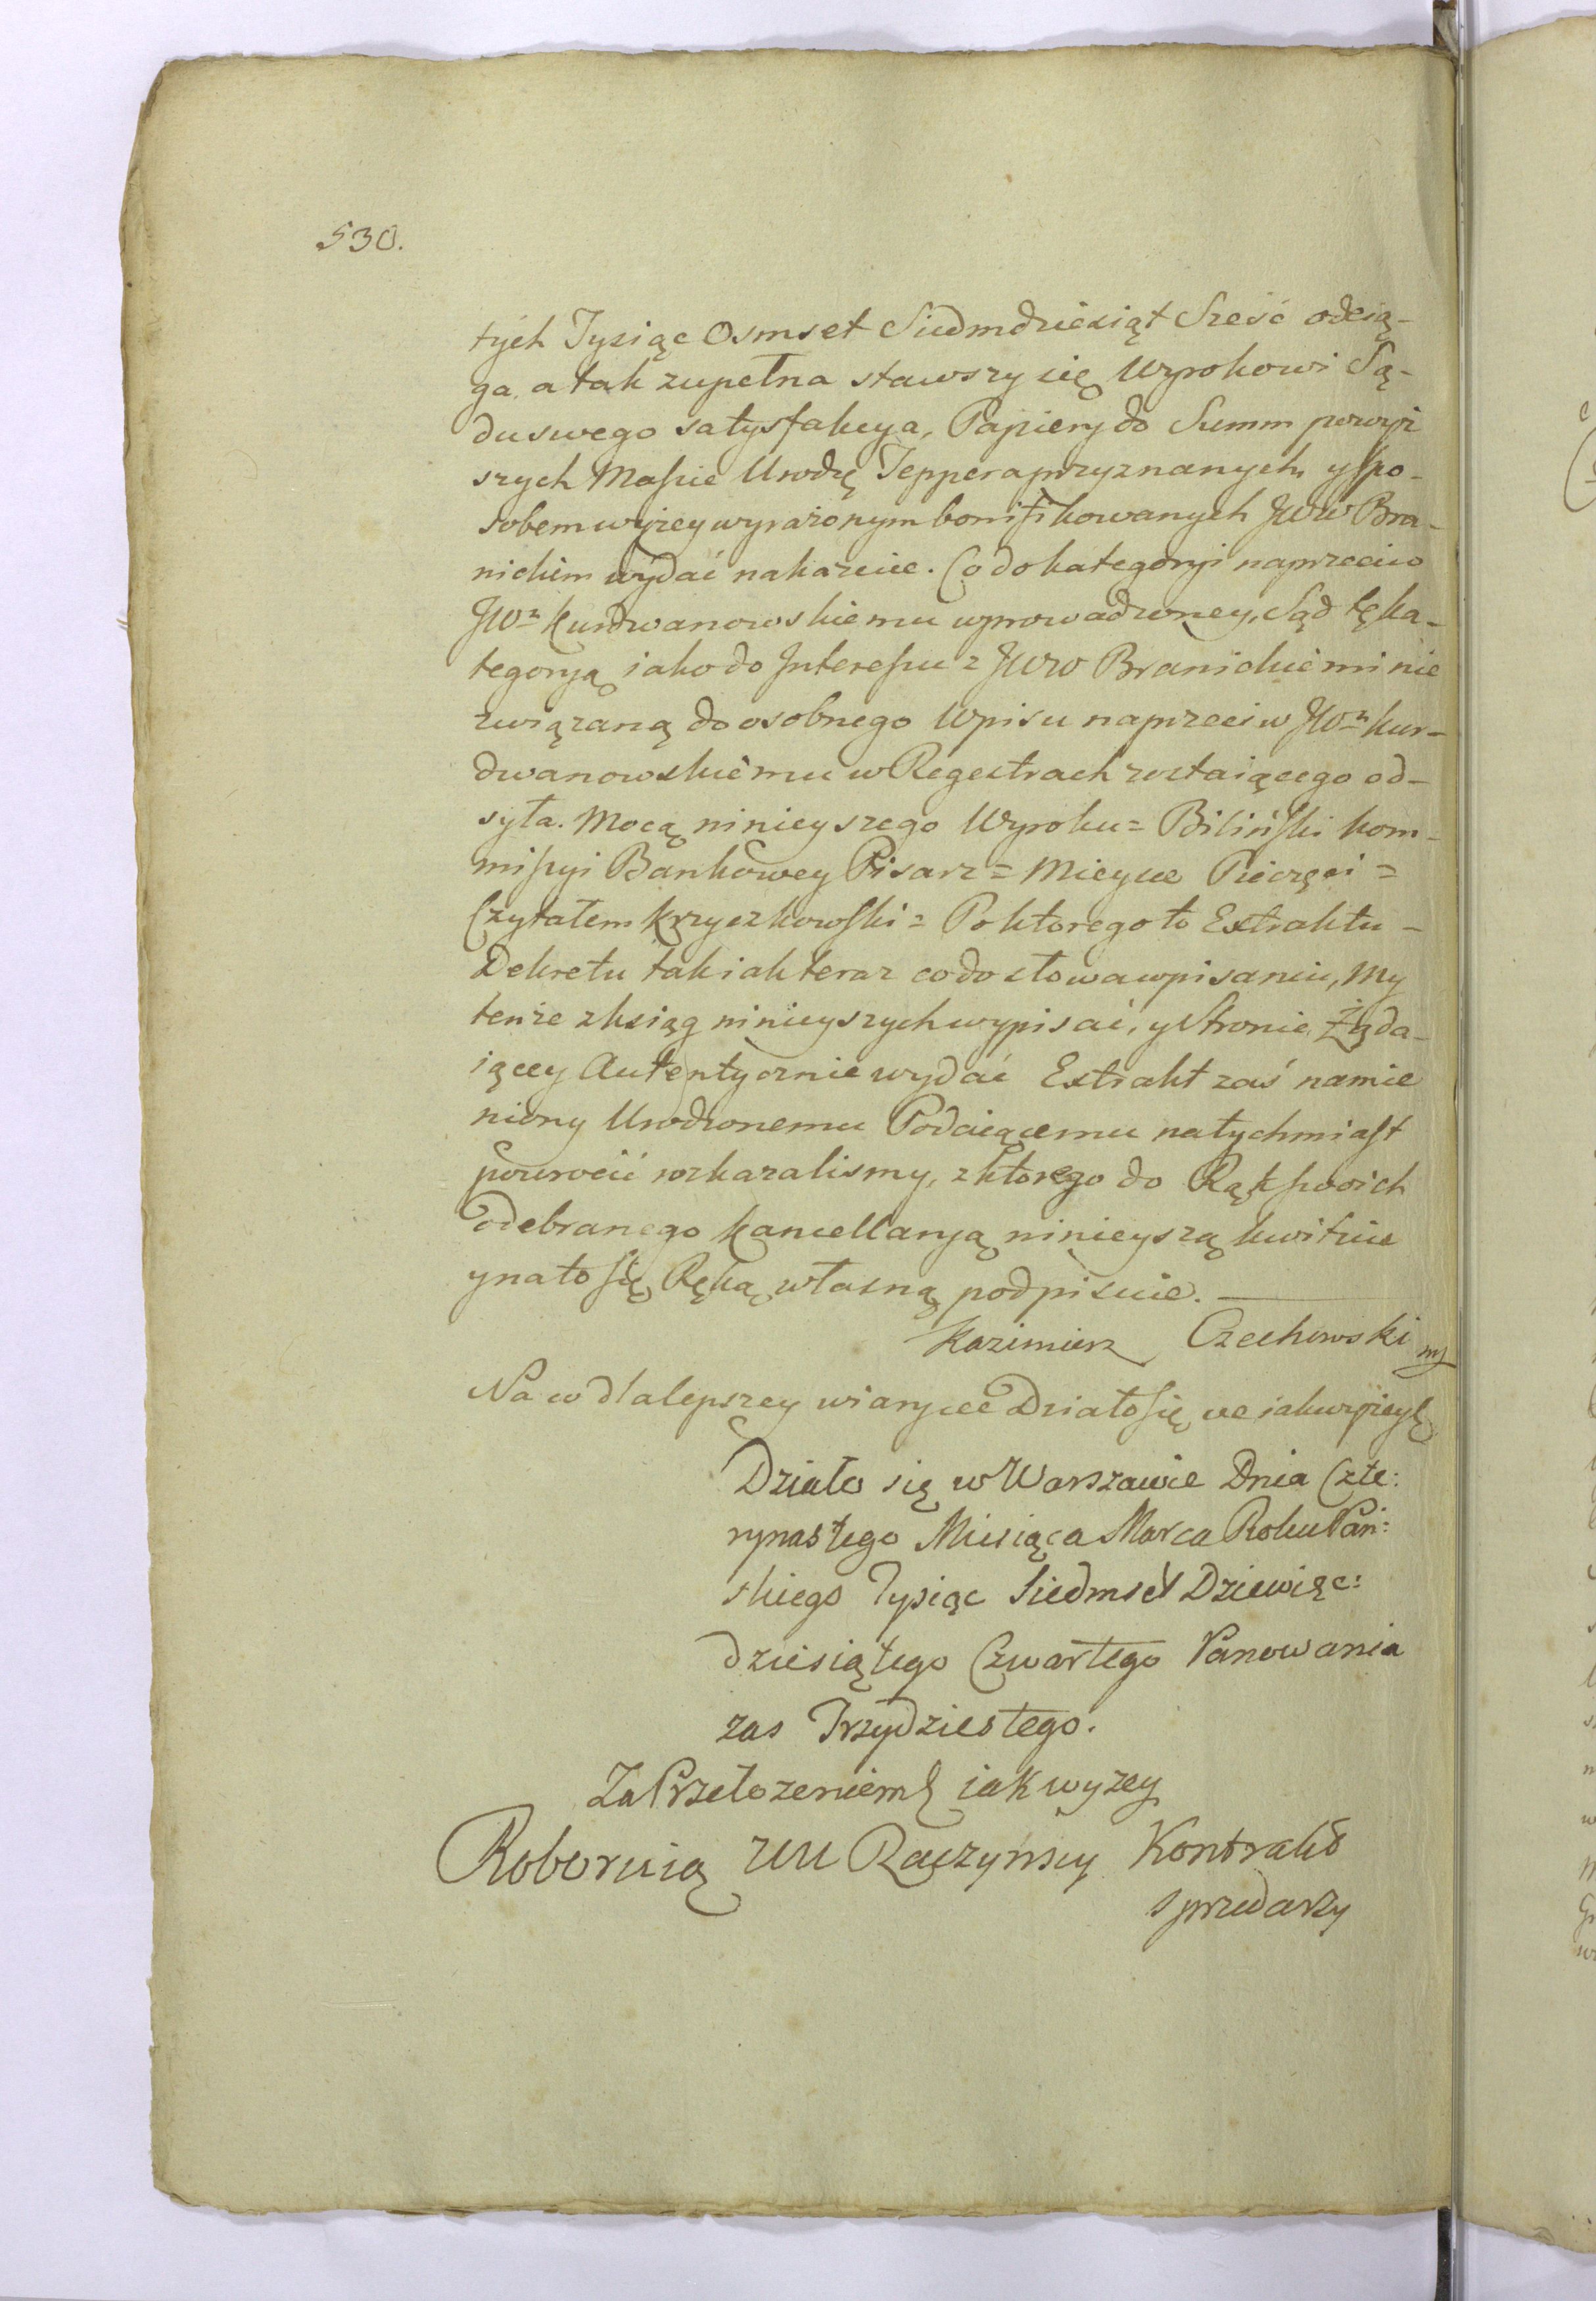 530.
tych Tysiąc Osmset Siedmdziesiąt Sześć odcią-
ga, a tak zupełna stawszy się Wyrokowi Są-
du swego satysfakcya, Papiery do Summ powyż
szych Massie Urodzę Teppera przyznanych, y spo-
sobem wyżey wyrażonym bonifikowanych JWW Bra-
nickim wydać nakazuie. Co do kategoryi naprzeciw
JWu Kurdwanowskiemu wprowadzoney, Sąd tę ka-
tegoryą iako do Interessu z JWW Branickiemi nie
związaną do osobnego Wpisu naprzeciw JWu Kur-
dwanowskiemu w Regestrach zostaiącego od-
syła. Mocą ninieyszego Wyroku = Biliński Kom-
missyi Bankowey Pisarz = Mieysce Pieczęci =
Czytałem Krzyczkowski = Po ktorego to Extraktu -
Dekretu tak iak teraz co do słowa wpisaniu, my
tenże z ksiąg ninieyszych wypisać, y Stronie Żąda-
iącey Autentycznie wydać Extrakt zaś namie
niony Urodzonemu Podaiącemu natychmiast
powrocić rozkazalismy, z ktorego do Rąk swoich
odebranego Kancellaryą ninieyszą kwituie
y na to się Ręką własną podpisuie.
Kazimierz Czechowski mp
Na co dla lepszey wiary etc Działo się etc iak wyżey
Działo się w Warszawie Dnia Czte:
rynastego Miesiąca Marca Roku Pań:
skiego Tysiąc Siedmset Dziewięć:
dziesiątego Czwartego Panowania
zas Trzydziestego.
Za Przełozeniem iak wyzey
Roboruią UU Raczynscy Kontrakt
sprzedarzy